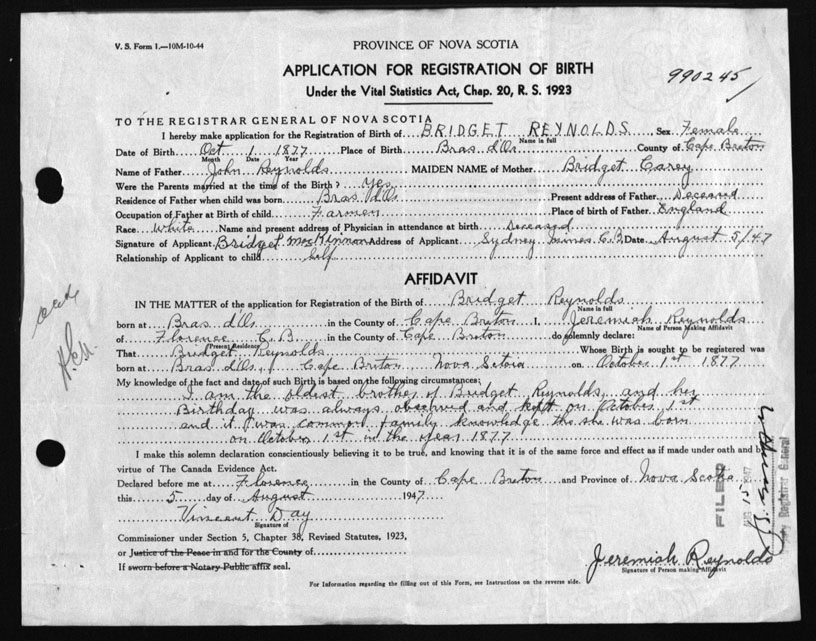 V. S. Form 1.—10M-10-44
PROVINCE OF NOVA SCOTIA
APPLICATION FOR REGISTRATION OF BIRTH
990245
Under the Vital Statistics Act, Chap. 20, R. S. 1923
TO THE REGISTRAR GENERAL OF NOVA SCOTIA
I hereby make application for the Registration of Birth of BRIDGET REYNOLDS, Sex Female
Name in full
Date of Birth Oct 1 1877 Place of Birth Bras d'Or County of Cape Breton
Month Date Year
Name of Father John Reynolds MAIDEN NAME of Mother Bridget Carey
Were the Parents married at the time of the Birth? yes
Residence of Father when child was born Bras d'Or Present address of Father Deceased
Occupation of Father at Birth of child Farmer Place of birth of Father England
Race White Name and present address of Physician in attendance at birth Deceased
Signature of Applicant Bridget MacKinnon Address of Applicant Sydney Mines C.B. Date August 5/47
Relationship of Applicant to child Self
AFFIDAVIT
IN THE MATTER of the application for Registration of the Birth of Bridget Reynolds
Name in full
born at Bras d'Or in the County of Cape Breton I, Jeremiah Reynolds
Name of Person Making Affidavit
of Florence C.B. in the County of Cape Breton do solemnly declare:
(Present Residence)
That Bridget Reynolds Whose Birth is sought to be registered was
born at Bras d'Or, Cape Breton Nova Scotia on October 1st 1877
My knowledge of the fact and date of such Birth is based on the following circumstances:
I am the oldest brother of Bridget Reynolds, and her
Birthday was always observed and kept on October 1st
and it was common family knowledge the she was born
on October 1st in the year 1877
I make this solemn declaration conscientiously believing it to be true, and knowing that it is of the same force and effect as if made under oath and by
virtue of The Canada Evidence Act.
Declared before me at Florence in the County of Cape Breton and Province of Nova Scotia
this 5 day of August 1947
Vincent Day
Signature of
Commissioner under Section 5, Chapter 38, Revised Statutes, 1923,
or Justice of the Peace in and for the County of
If sworn before a Notary Public affix seal.
Jeremiah Reynolds
Signature of Person making Affidavit
For Information regarding the filling out of this Form, see Instructions on the reverse side.
FILED
AUG 15 1947
Registrar General